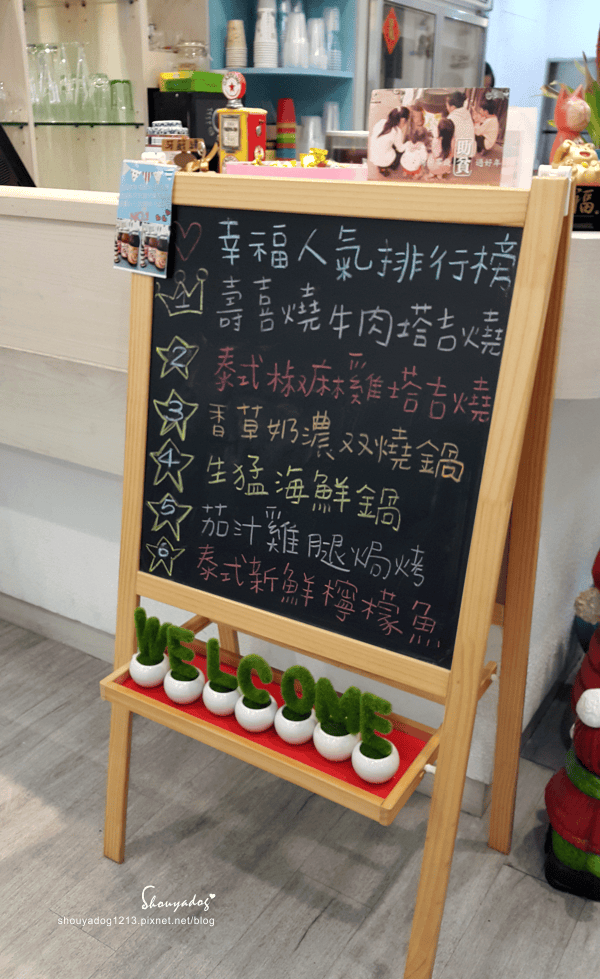 幸福人氣排行榜
1 壽喜燒牛肉塔吉燒
2 泰式椒麻雞塔吉燒
3 香草奶濃双燒鍋
4 生猛海鮮鍋
5 茄汁雞腿焗烤
6 泰式新鮮檸檬魚
WELCOME
Shouyadog
shouyadog1213.pixnet.net/blog